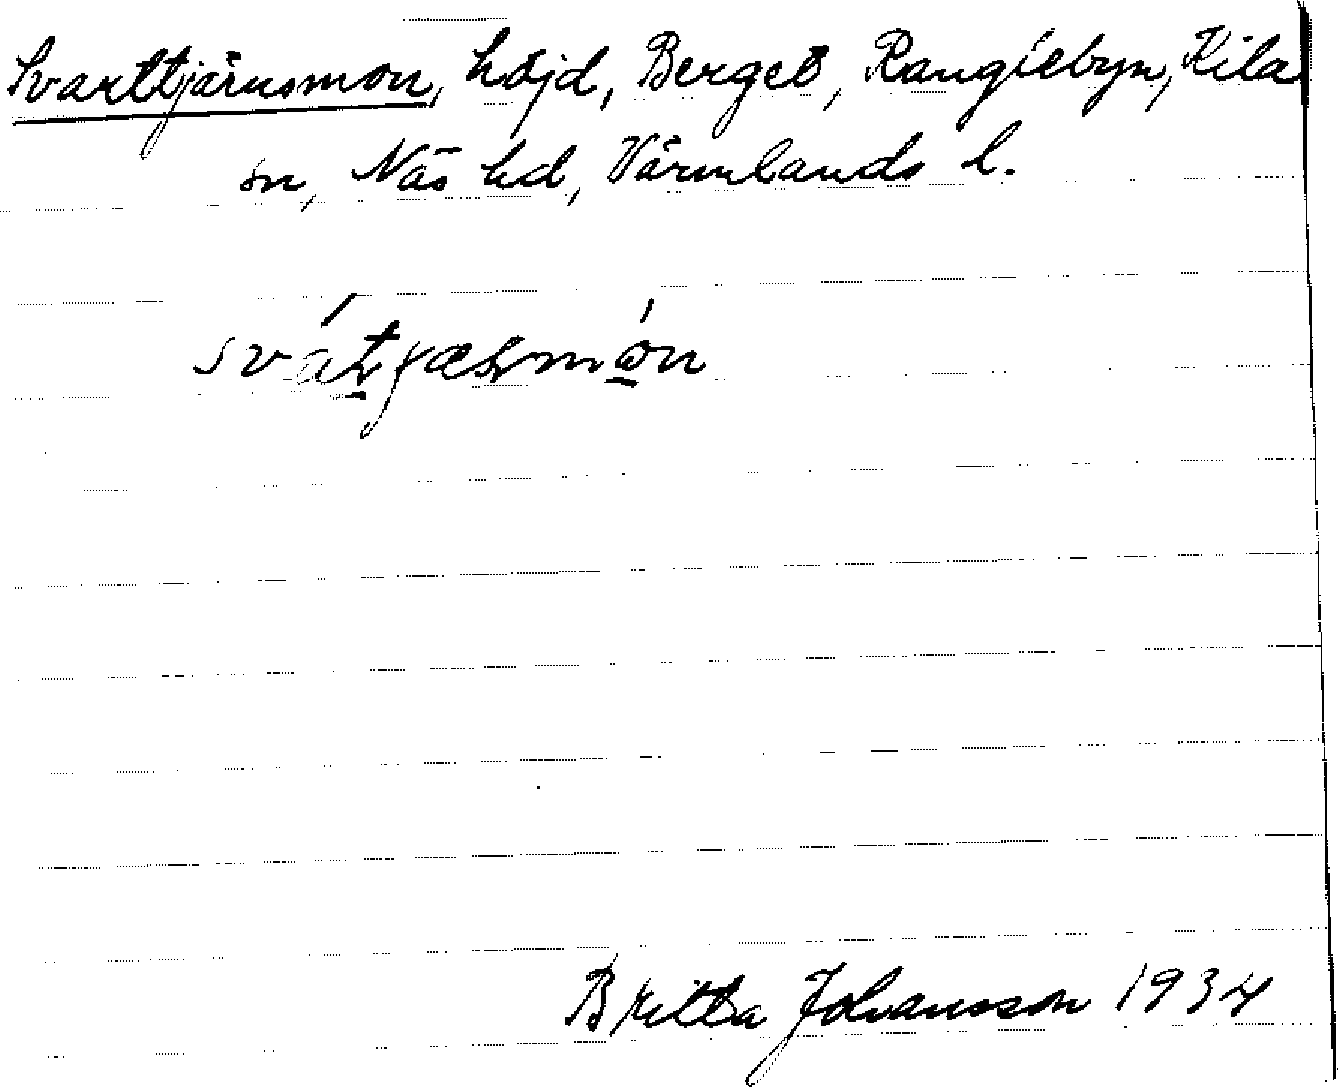 Svarttjärnsmon, höjd, Berget, Ranglebyn, Kila
sn, Näs hd, Värmlands l.
Britta Johansson 1934